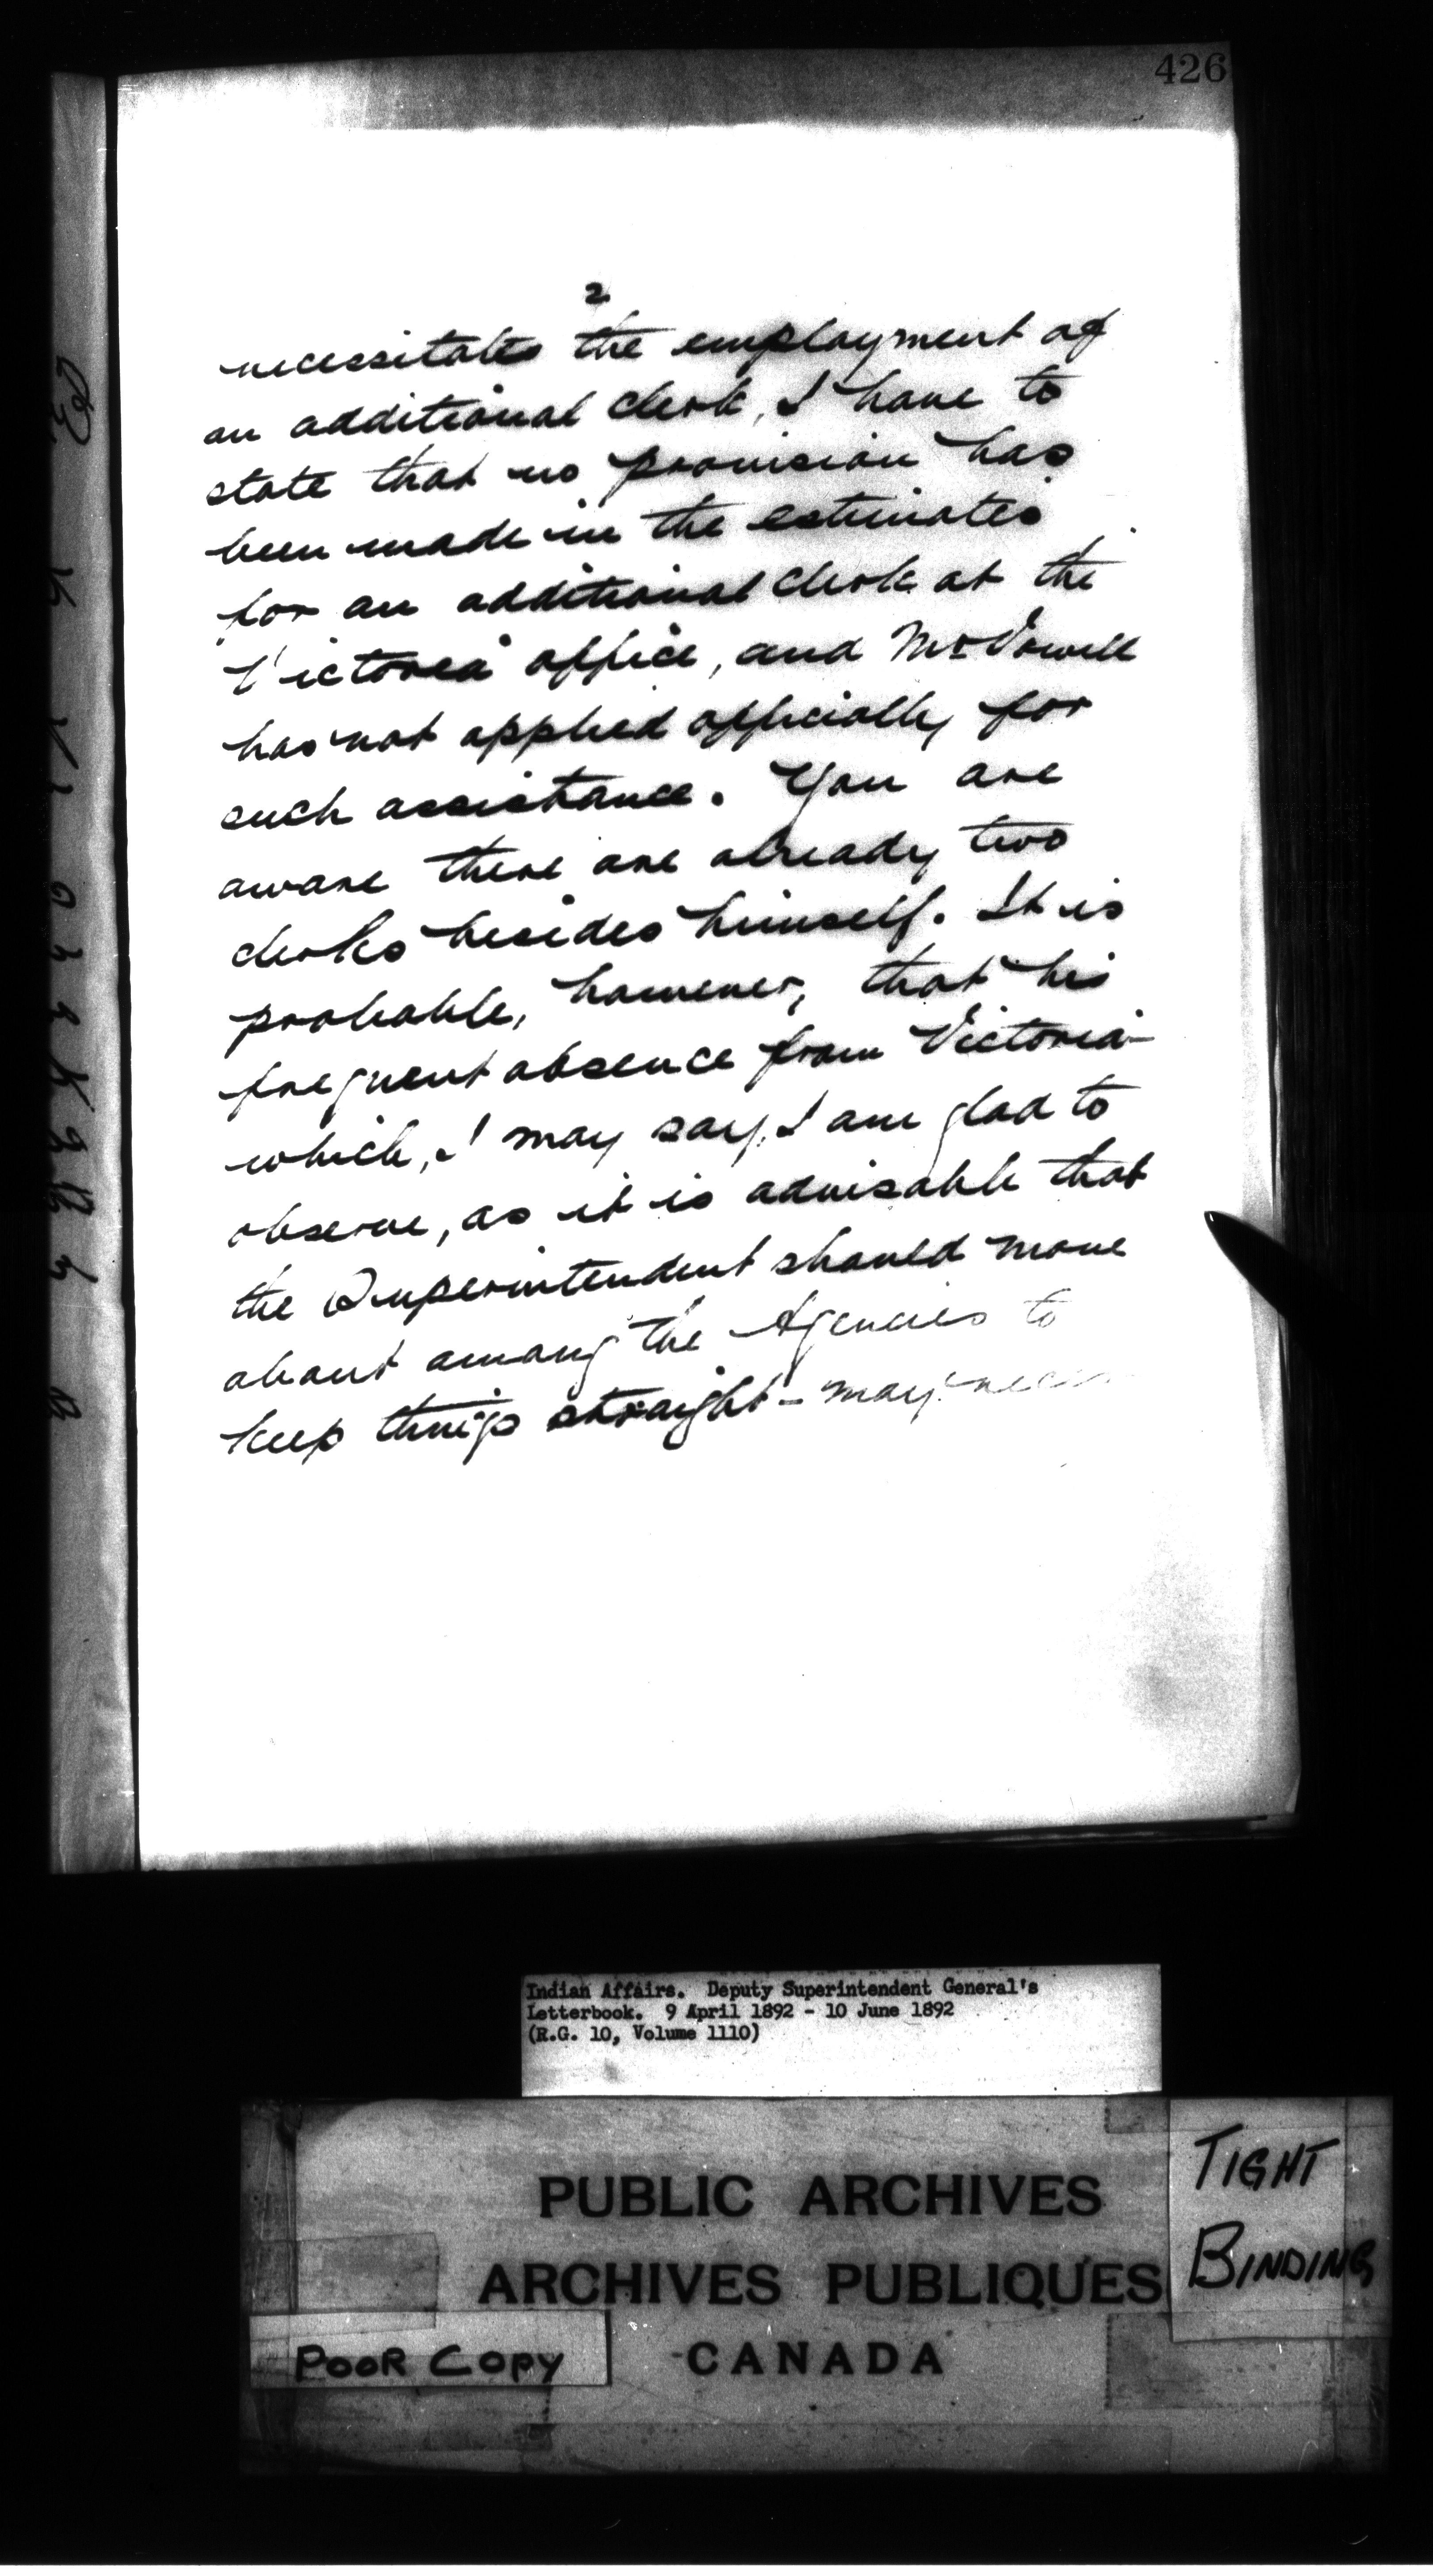 426
2
necessitates the employment of
an additional clerk, I have to
state that no provision has
been made in the estimates
for an additional clerk at the
Victoria office, and Mr Vowell
has not applied officially for
such assistance. You are
aware there are already two
clerks besides himself. It is
probable, however, that his
frequent absence from Victoria -
which, I may say, I am glad to
observe, as it is advisable that
the Superintendent should move
about among the Agencies to
keep things straight - may
Indian Affairs. Deputy Superintendent General's
Letterbook. 9 April 1892 - 10 June 1892
(R.G. 10, Volume 1110)
PUBLIC ARCHIVES
ARCHIVES PUBLIQUES
CANADA
TIGHT
BINDING
POOR COPY